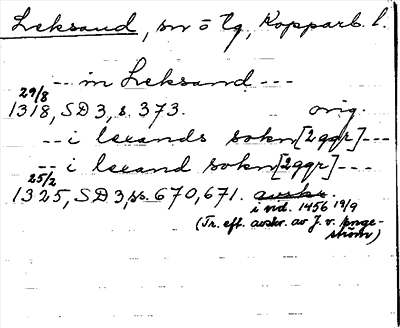 Leksand, sn o tg, Kopparb. l.
-- in Leksand ---
29/8
1318, SD 3, s. 373. orig.
-- i lexands sokn [2 ggr] ---
-- i lexand sokn [2 ggr] ---
25/2
1325, SD 3, ss. 670, 671. avskr.
i vid. 1456 19/9
(Tr. eft. avskr. av J. v. Enge-
ström)